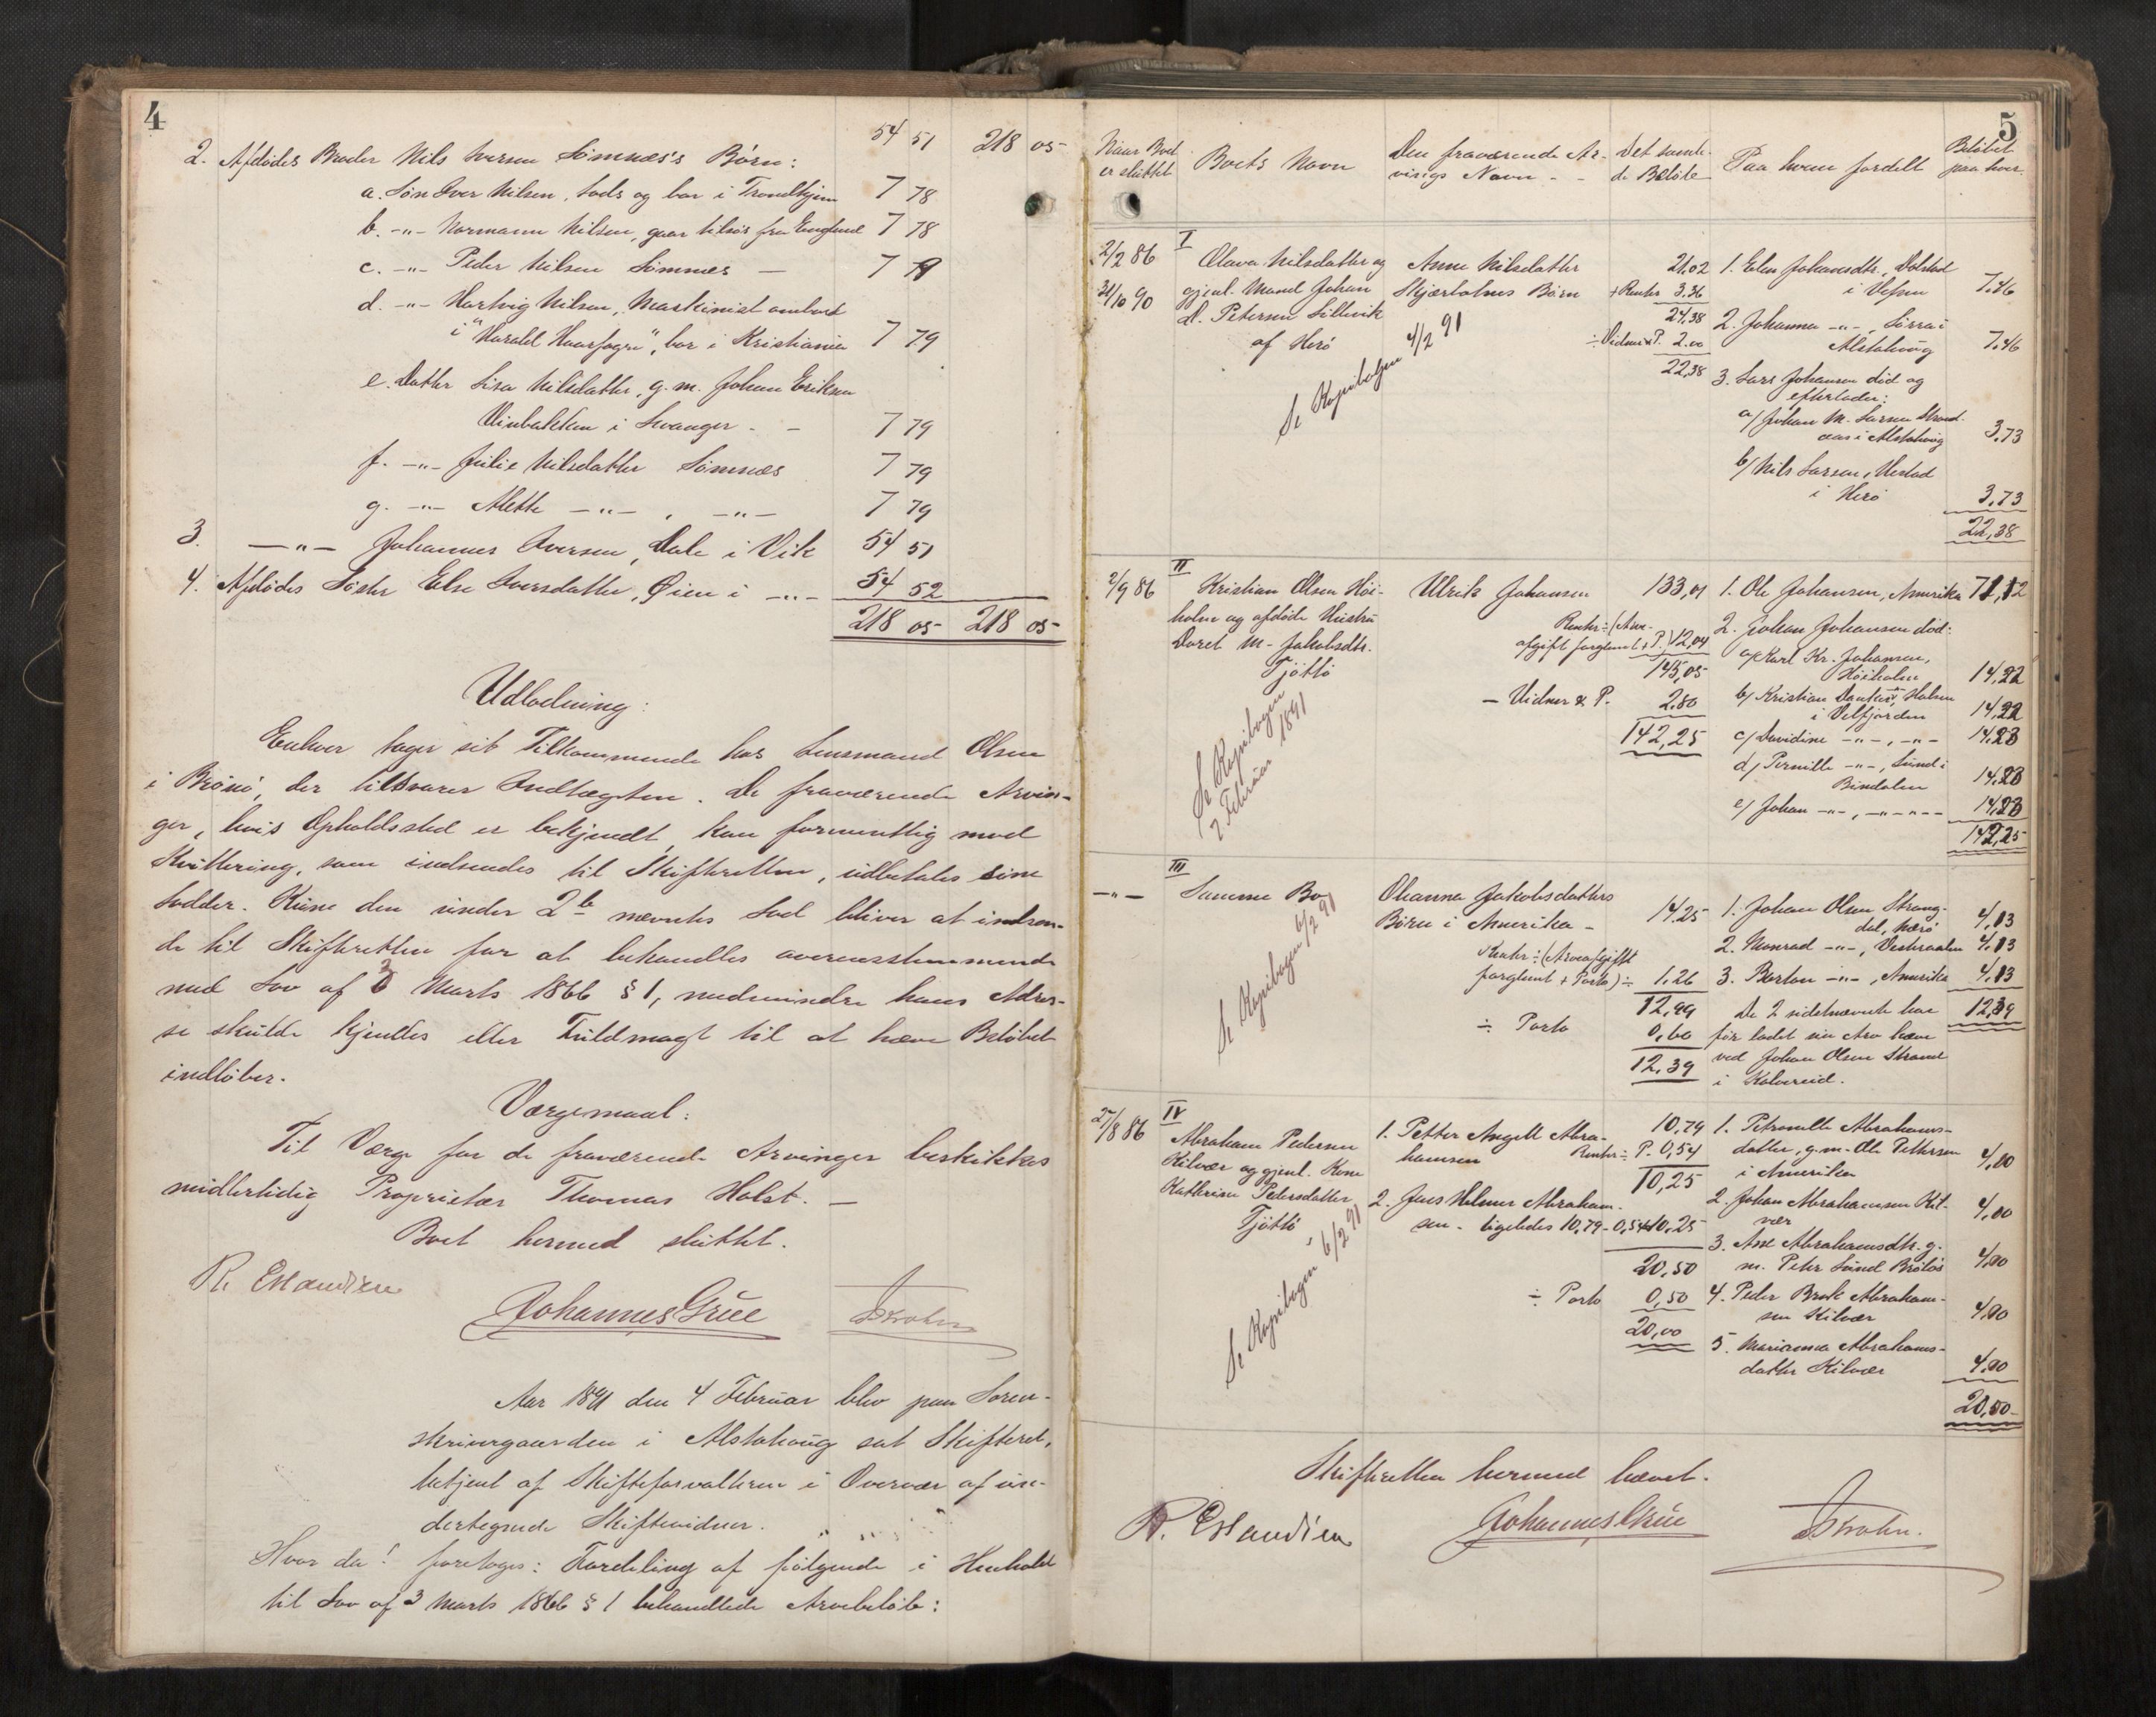 4
54 51 218 05
2. Afdødes Broder Nils Iversen Sømnæs's Børn:
a. Søn Iver Nilsen, Lods og bor i Trondhjem 7 78
b. -"- Normann Nilsen, gaar tilsøs fra England 7 78
c. -"- Peder Nilsen Sømnes — 7 79
d. -"- Hartvig Nilsen, Maskinist ombord
i "Harald Haarfagre", bor i Kristiania 7 79
e. Datter Lisa Nilsdatter, g. m. Johan Eriksen
Vinbakken i Levanger - - 7 79
f. -"- Julie Nilsdatter Sømnæs 7 79
g. -"- Mette -"- , -"- 7 79
3. -"- Johannes Iversen, Dale i Vik 54 51
4. Afdødes Søster Else Iversdatter, Øien i -"- 54 52
218 05 218 05
Udlodning:
Enhver tager sit Tilkommende hos Lensmand Olsen
i Brønø, der tilsvarer Indtægten. De fraværende Arvin-
ger, hvis Opholdssted er bekjendt, kan formentlig mod
Kvittering, som indsendes til Skifteretten, udbetales sine
Lodder. Kun den under 2b nævntes Lod bliver at indsen-
de til Skifteretten for at behandles overensstemmende
med Lov af 3 Marts 1866 § 1, medmindre hans Adres-
se skulde kjendes eller Fuldmagt til at hæve Beløbet
indløber.
Værgemaal:
Til Værge for de fraværende Arvinger beskikkes
midlertidig Proprietær Thomas Holst. —
Boet hermed sluttet.
R. Eslandsen
Johannes Grüe Strohn
Aar 1891 den 4 Februar blev paa Soren-
skrivergaarden i Alstahoug sat Skifteret,
betjent af Skifteforvalteren i Overvær af un-
dertegnede Skiftevidner.
Hvor da! foretoges: Fordeling af følgende i Henhold
til Lov af 3 Marts 1866 § 1 behandlede Arvebeløb:
5
Naar Boet er sluttet
Boets Navn
Den fraværende Ar-
vings Navn - -
Det samle-
de Beløb
Paa hvem fordelt
Beløbet
paa hver.
I
2/2 86
31/10 90
Olava Nilsdatter og
gjenl. Mand Johan
A. Petersen Sillivik
af Herø
Se Kopibogen 4/2 91
Anne Nilsdatter
Skjærholmes Børn
21,02
+ Renter 3.36
24,38
÷ Vidner & P. 2.00
22,38
1. Elen Johansdtr., Dolstad
i Vefsen 7.46
2. Johanna -"-, Sørra i
Alstahoug 7.46
3. Lars Johansen død og
efterlader:
a/ Johan M. Larsen Strand-
aas i Alstahoug 3,73
b/ Nils Larsen, Ulestad
i Herø 3,73
22,38
II
2/9 86
Kristian Olsen Høi-
holm og afdøde Hustru
Doret M. Jakobsdtr.
Tjøttø
Se Kopibogen
7 Februar 1891
Ulrik Johansen 133,01
Renter ÷ (Arve-
afgift forglemt + P.) 12,04
145,05
— Vidner & P. 2.80
142,25
1. Ole Johansen, Amerika 71,12
2. Johan Johansen død:
a/ Karl Kr. Johansen,
Høiholm 14,22
b/ Kristian Dantas, Holmen
i Velfjorden 14,22
c/ Davidine -"-, -"- 14,23
d/ Pernille -"-, Lund i
Bindalen 14,23
e/ Johan -"-, -"- 14,23
142,25
III
-"-
Samme Bo
Se Kopibogen 6/2 91
Ohanna Jakobsdatters
Børn i Amerika - 14.25
Renter ÷ (Arveafgift
forglemt + Porto) ÷ 1.26
12,99
÷ Porto 0,60
12.39
1. Johan Olsen Strang-
dal, Nærø 4,13
2. Monrad -"-, Vesteraalen 4.13
3. Borton -"-, Amerika 4.13
De 2 sidstnævnte har 12,39
før ladet sin Arv hæve
ved Johan Olsen Strand
i Kolvereid.
IV
27/8 86
Abraham Pedersen
Kilvær og gjenl. Kone
Kathrine Petersdatter,
Tjøttø
Se Kopibogen 6/2 91
1. Petter Angell Abra-
hamsen 10,79
Renter ÷ P. 0,54
10,25
2. Jens Holmer Abraham-
sen - ligeledes 10,79 - 0,54 10,25
20,50
÷ Porto 0,50
20,00
1. Petronelle Abrahams-
datter, g. m. Ole Pettersen
i Amerika 4,00
2. Johan Abrahamsen Kil-
vær 4,00
3. Ane Abrahamsdtr. g.
m. Peter Lund Brøløs 4,00
4. Peder Brok Abraham-
sen Kilvær 4,00
5. Marianna Abrahams-
datter Kilvær 4.00
20,00
Skifteretten hermed hævet.
R. Eslandsen Johannes Grüe Strohn.